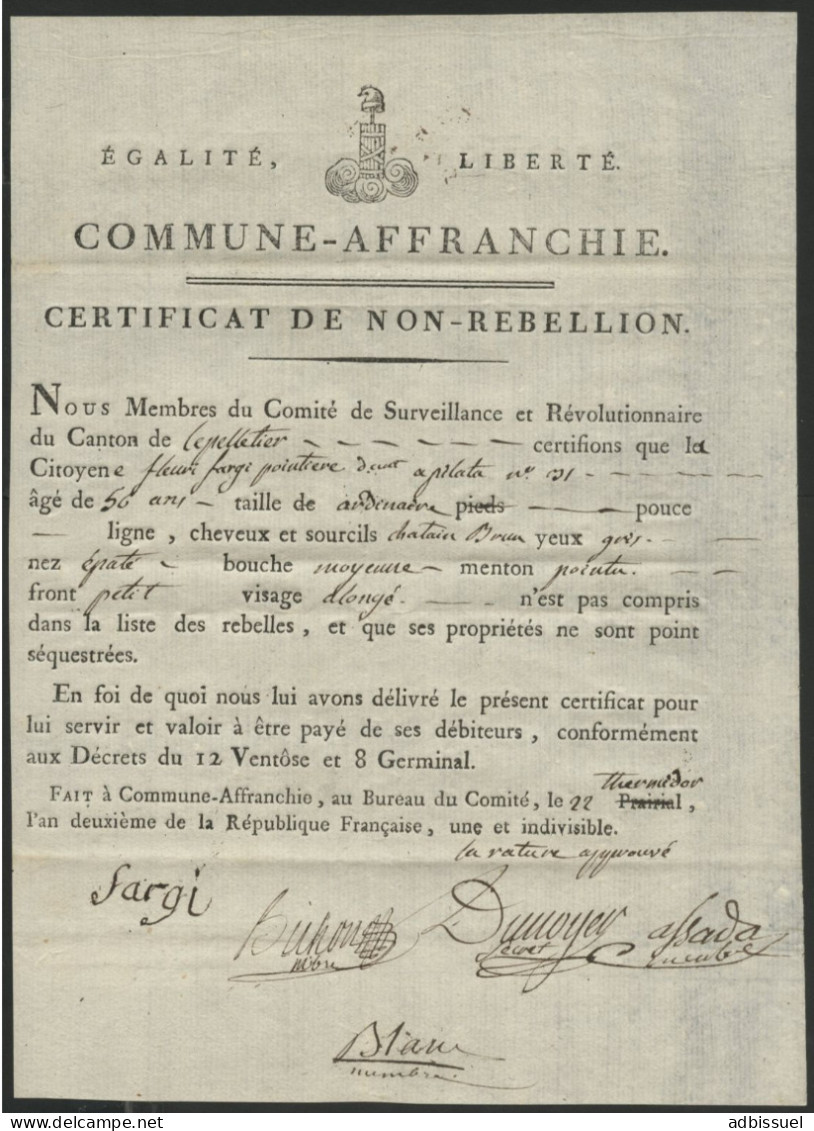 ÉGALITÉ, LIBERTÉ.
COMMUNE-AFFRANCHIE.
CERTIFICAT DE NON-REBELLION.
Nous Membres du Comité de Surveillance et Révolutionnaire
du Canton de Lepelletier - - - - - certifions que la
Citoyene fleuri fargi pointiere apilata n° 131 - - -
âgé de 56 ans - taille de ardinaere pieds - - pouce
- ligne, cheveux et sourcils chatain Brun yeux gris - -
nez épaté - bouche moyenne - menton pointu - -
front petit visage alongé - - - n'est pas compris
dans la liste des rebelles, et que ses propriétés ne sont point
séquestrées.
En foi de quoi nous lui avons délivré le présent certificat pour
lui servir et valoir à être payé de ses débiteurs, conformément
aux Décrets du 12 Ventôse et 8 Germinal.
thermidor
Fait à Commune-Affranchie, au Bureau du Comité, le 22 Prairial,
l'an deuxième de la République Française, une et indivisible.
la rature approuvé
fargi
Dunoyer assada
mbre secret membre
Blanc
membre
adbissuel